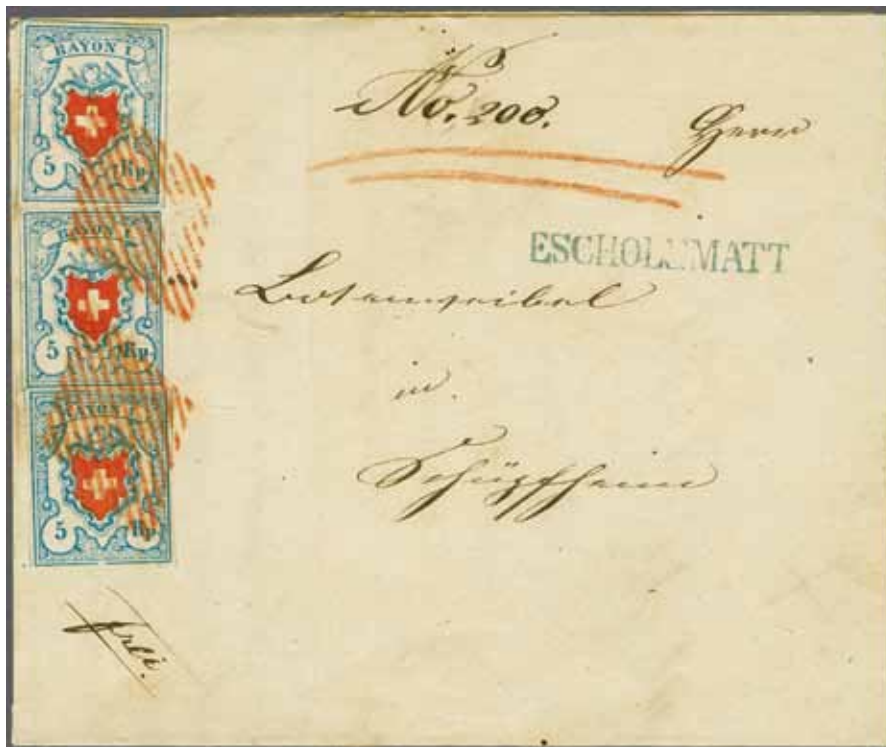 RAYON I
5 Rp
RAYON I
5 Rp
RAYON I
5 Rp
No. 200.
Herrn
ESCHOLZMATT
Botenweibel
in
Schüpfheim
frei.